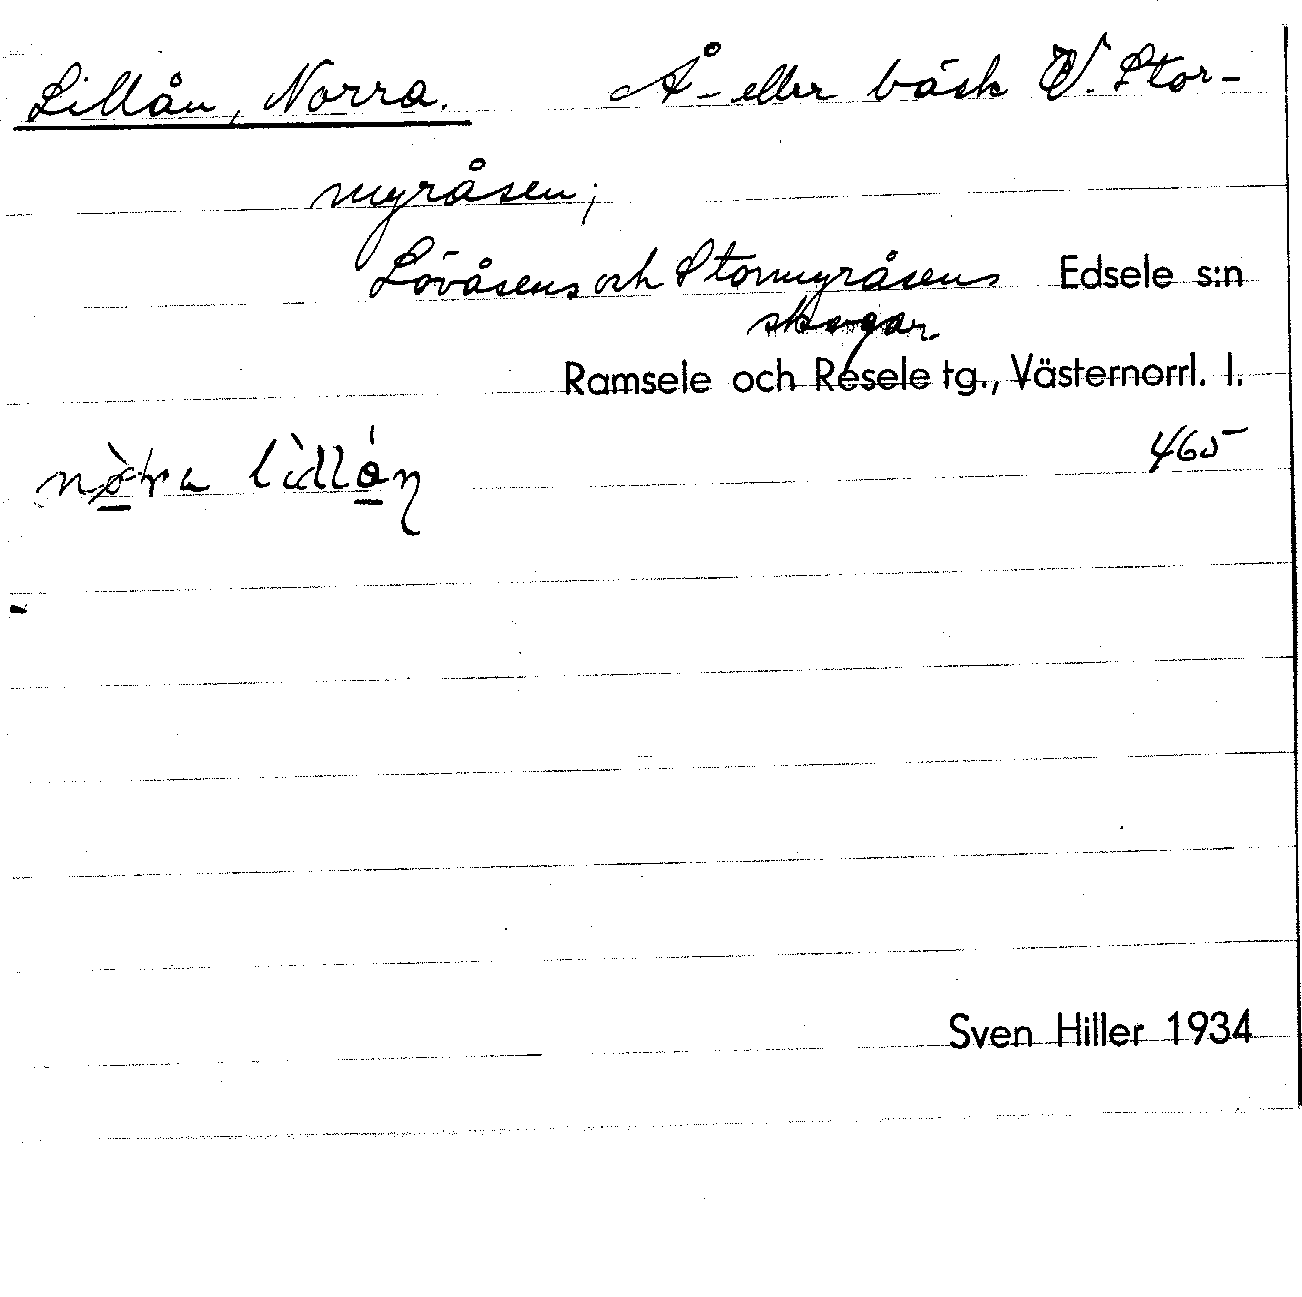 Lillån, Norra. Å- eller bäck V. Stor-
myråsen;
Lövåsens och Stormyråsens Edsele s:n
skogar
Ramsele och Resele tg., Västernorrl. l.
465
lìllån
Sven Hiller 1934